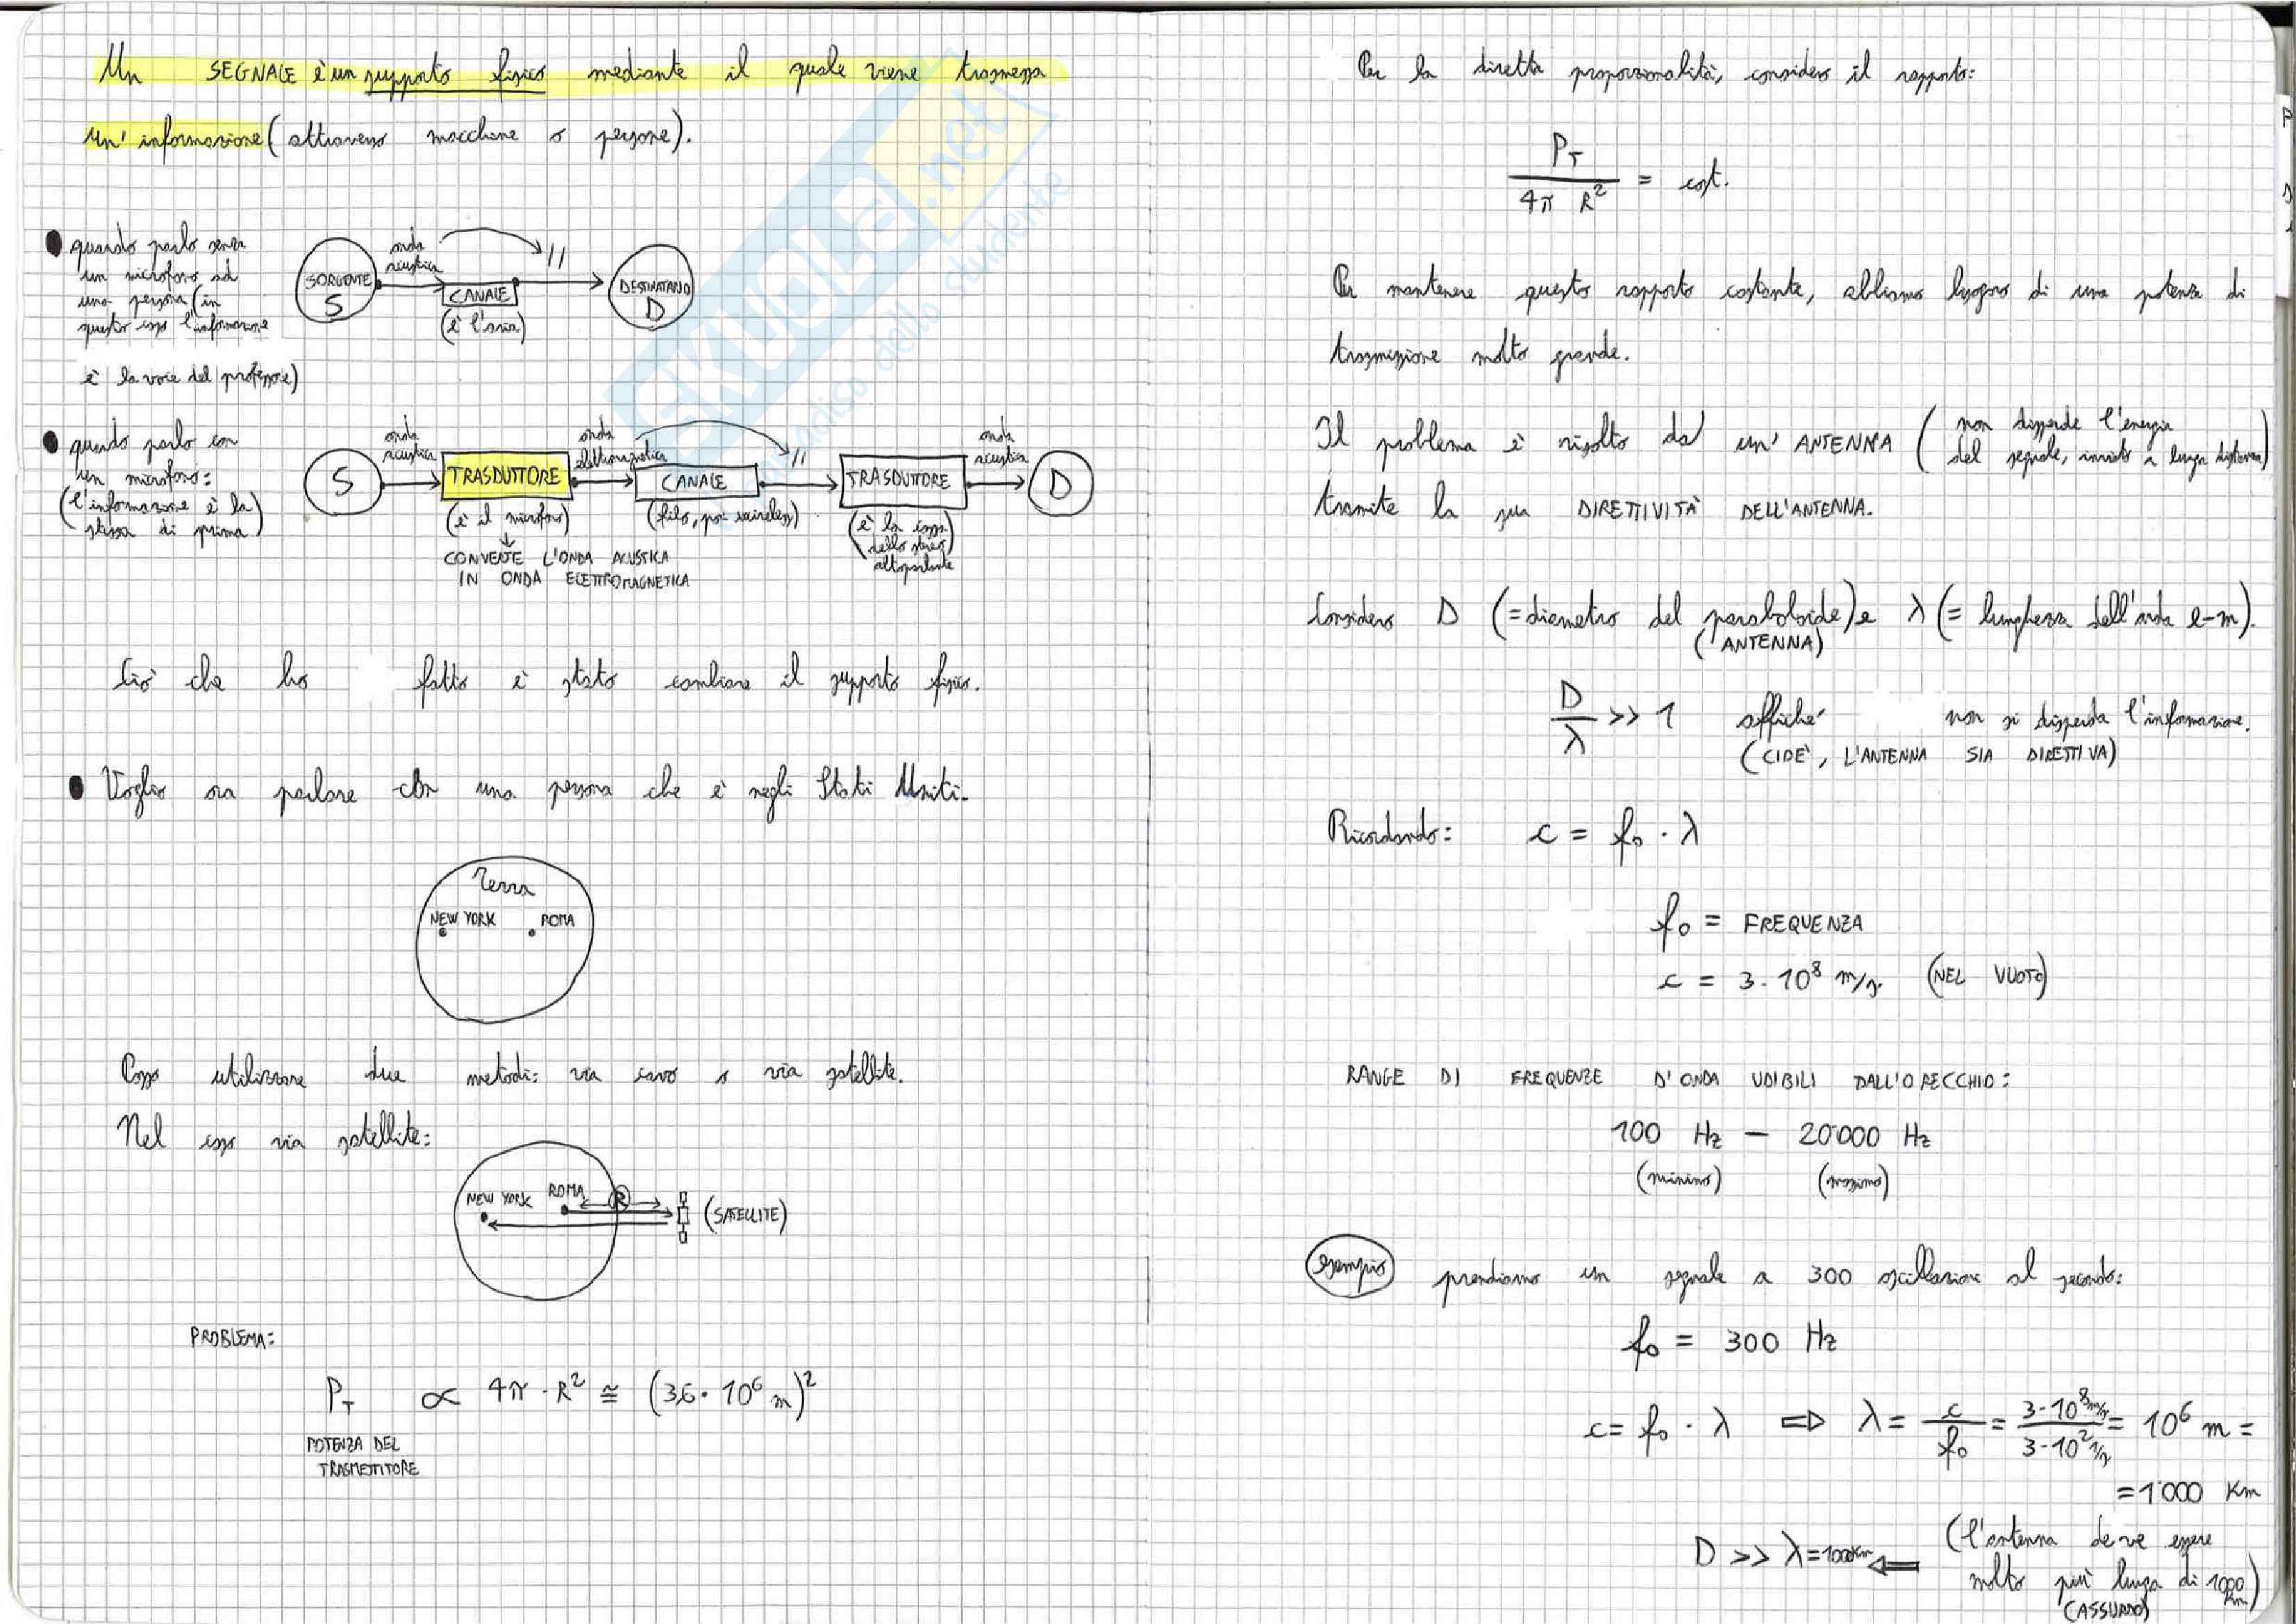 Un SEGNALE è un supporto fisico mediante il quale viene trasmessa
un' informazione (attraverso macchine o persone).
● quando parlo senza
un microfono ad
una persona (in
questo caso l'informazione
è la voce del professore)
SORGENTE
S
onda
acustica
CANALE
(è l'aria)
//
DESTINATARIO
D
● quando parlo con
un microfono:
(l'informazione è la
stessa di prima)
S
onda
acustica
TRASDUTTORE
(è il microfono)
↓
CONVERTE L'ONDA ACUSTICA
IN ONDA ELETTROMAGNETICA
onda
elettromagnetica
CANALE
(filo, poi wireless)
//
TRASDUTTORE
(è la cassa
dello stereo)
altoparlante
onda
acustica
D
Ciò che ho fatto è stato cambiare il supporto fisico.
● Voglio ora parlare con una persona che è negli Stati Uniti.
Terra
NEW YORK
ROMA
Posso utilizzare due metodi: via cavo o via satellite.
Nel caso via satellite:
NEW YORK
ROMA
R
(SATELLITE)
PROBLEMA:
P_T ∝ 4π · R² ≅ (36 · 10⁶ m)²
POTENZA DEL
TRASMETTITORE
SKUOLA.net
paradiso dello studente
Per la diretta proporzionalità, considero il rapporto:
P_T / 4π R² = cost.
Per mantenere questo rapporto costante, abbiamo bisogno di una potenza di
trasmissione molto grande.
Il problema è risolto da un' ANTENNA (non disperde l'energia
del segnale, inviato a lunga distanza)
tramite la sua DIRETTIVITÀ DELL'ANTENNA.
Considero D (=diametro del paraboloide) e λ (= lunghezza dell'onda e-m).
(ANTENNA)
D / λ >> 1 affiché non si disperda l'informazione.
(CIOÈ, L'ANTENNA SIA DIRETTIVA)
Ricordando: c = f₀ · λ
f₀ = FREQUENZA
c = 3 · 10⁸ m/s (NEL VUOTO)
RANGE DI FREQUENZE D'ONDA UDIBILI DALL'ORECCHIO:
100 Hz — 20'000 Hz
(minimo) (massimo)
esempio prendiamo un segnale a 300 oscillazioni al secondo:
f₀ = 300 Hz
c = f₀ · λ ⇒ λ = c / f₀ = 3·10⁸ m/s / 3·10² 1/s = 10⁶ m =
= 1'000 Km
D >> λ = 1000 Km ⇐ (l'antenna deve essere
molto più lunga di 1000 Km)
(ASSURDO)